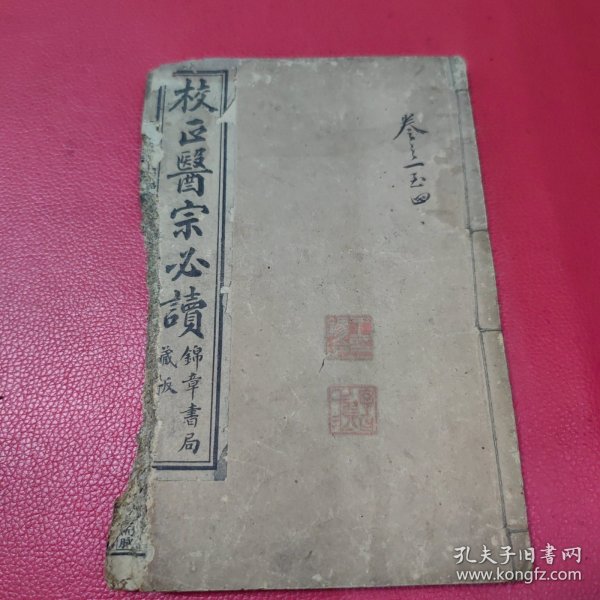 校正醫宗必讀
錦章書局
藏版
卷之一至四
孔夫子旧书网
www.kongfz.com